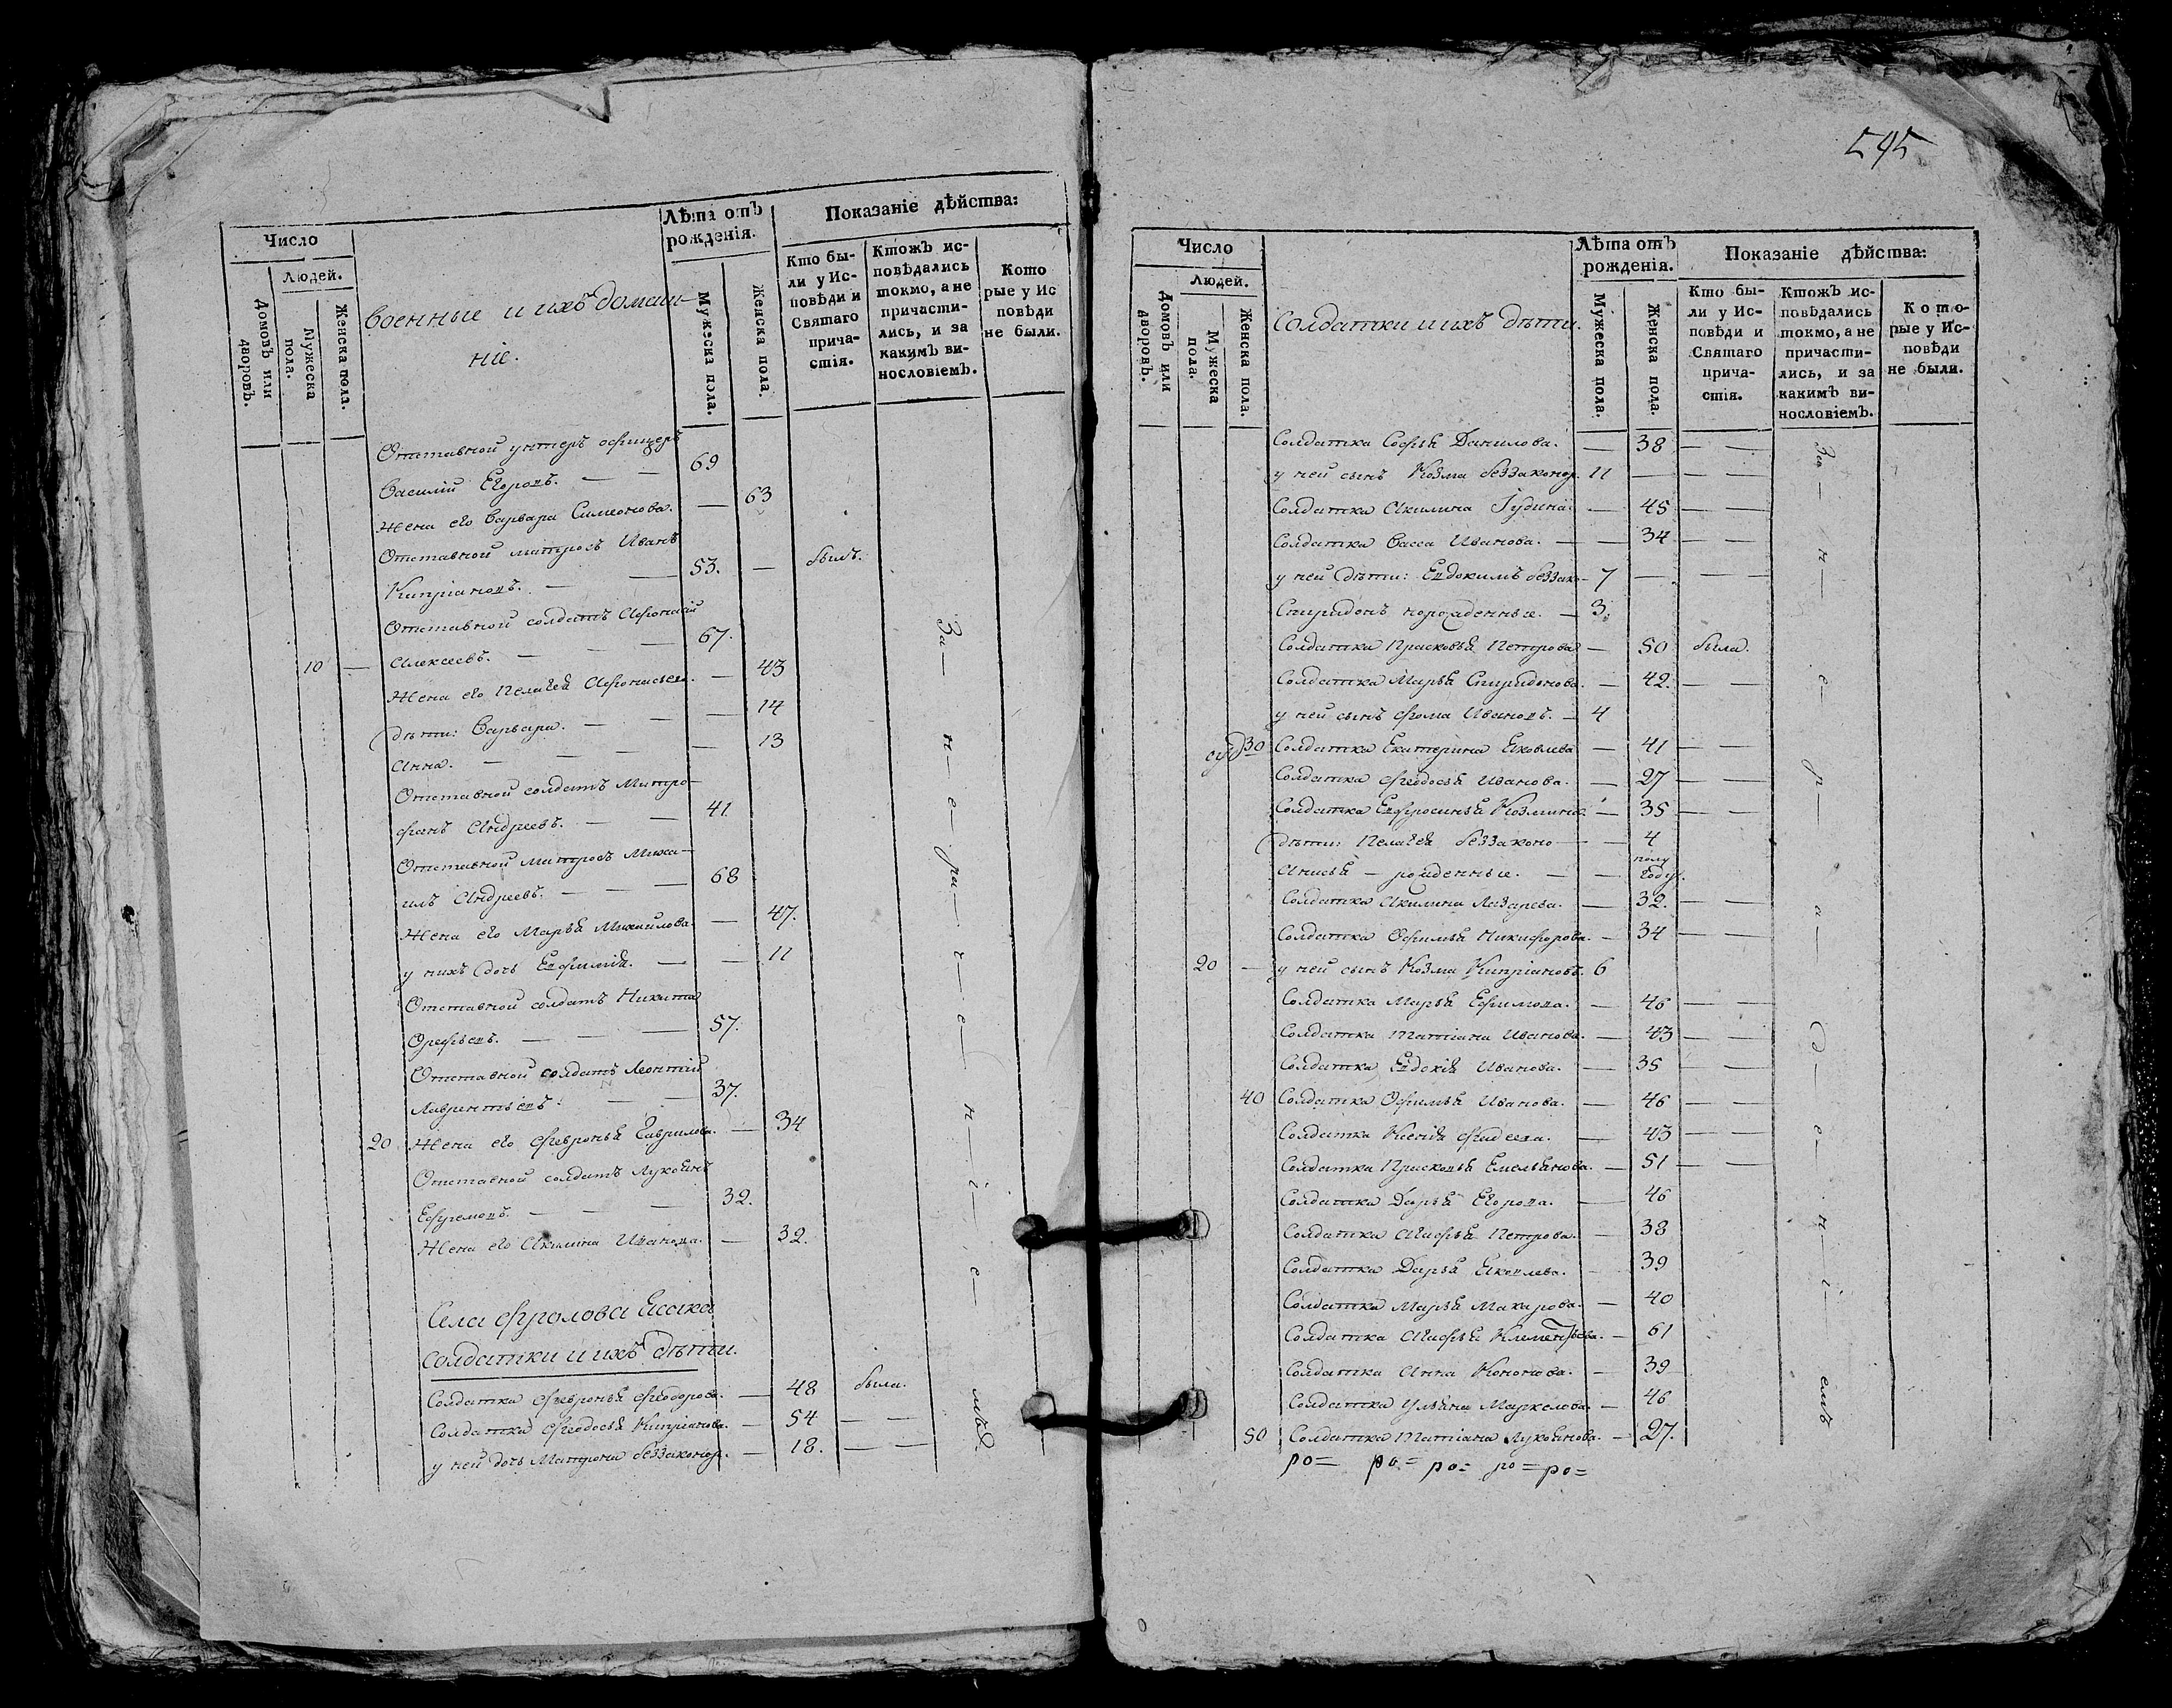 Число
Людей.
Домовъ или дворовъ.
Мужеска пола.
Женска пола.
Военные и ихъ домаш-
ніе.
Лѣта отъ
рожденія.
Мужеска пола.
Женска пола.
Показаніе дѣйства:
Кто бы-
ли у Ис-
повѣди и
Святаго
прича-
стія.
Ктожъ ис-
повѣдались
токмо, а не
причасти-
лись, и за
какимъ ви-
нословіемъ.
Кото
рые у Ис
повѣди
не были.
Отставной унтеръ офицеръ
Василій Егоровъ. — — 69
Жена его Варвара Симеонова. — 63
Отставной матросъ Иванъ
Кипріановъ. — — 53. — былъ.
Отставной солдатъ Афонасій
10 — Алексеевъ. — — 67.
Жена его Пелагея Афонасьева. — 43
Дѣти: Варвара. — — — 14
Анна. — — — 13
Отставной солдатъ Митро-
фанъ Андреевъ. — — 41
Отставной матросъ Миха-
илъ Андреевъ. — — — 68
Жена его Марья Михайлова. — 47.
у нихъ дочь Евфимія. — — 11
Отставной солдатъ Никита
Орефьевъ. — — — 57.
Отставной солдатъ Леонтій
Лаврентьевъ. — — 37.
20 Жена его Февронья Гаврилова. — 34
Отставной солдатъ Лукоянъ
Ефремовъ. — — — 32.
Жена его Акилина Иванова. — 32.
За — н — е — ра — ч — е — н — і — е — мъ
Села Фролова Ясака
солдатки и ихъ дѣти.
Солдатка Февронья Феодорова. — 48 была.
Солдатка Феодосья Кипріанова. — 54 — —
у ней дочь Матрона беззаконор. — 18. — —
595
Число
Людей.
Домовъ или дворовъ.
Мужеска пола.
Женска пола.
Солдатки и ихъ дѣти.
Лѣта отъ
рожденія.
Мужеска пола.
Женска пола.
Показаніе дѣйства:
Кто бы-
ли у Ис-
повѣди и
Святаго
прича-
стія.
Ктожъ ис-
повѣдались
токмо, а не
причасти-
лись, и за
какимъ ви-
нословіемъ.
Кото-
рые у Ис-
повѣди
не были.
Солдатка Софья Данилова. — 38 — —
у ней сынъ Козма беззаконор. 11 — — —
Солдатка Акилина Гудина — 45 — —
Солдатка Васса Иванова. — — 34 — —
у ней дѣти: Евдокимъ беззак- 7 — — —
Спиридонъ норожденные. — 3.
Солдатка Прасковья Петрова — 50 была.
Солдатка Марья Спиридонова. — 42. — —
у ней сынъ Фома Ивановъ. — 4
30 Солдатка Екатерина Яковлева — 41 — —
Солдатка Феодосья Иванова. — 27 — —
Солдатка Евфросинья Козмина. — 35 — —
Дѣти: Пелагея беззаконо — — 4
Анисья — рожденные. — — полу году.
Солдатка Акилина Лазарева. — 32. — —
Солдатка Офимья Никифорова. — 34 — —
20 — у ней сынъ Козма Кипріановъ. 6
Солдатка Марья Ефимова. — 46 — —
Солдатка Татіана Иванова. — 43 — —
Солдатка Евдокія Иванова. — 35 — —
40 Солдатка Офимья Иванова. — 46 — —
Солдатка Ксенія Фадеева. — 43 — —
Солдатка Прасковья Емельянова. — 51 — —
Солдатка Дарья Егорова. — 46
Солдатка Агафья Петрова. — 38
Солдатка Дарья Яковлева. — 39
Солдатка Марья Макарова. — 40
Солдатка Агафья Клементьева. — 61
Солдатка Анна Кононова. — 39
Солдатка Ульяна Маркелова. — 46
50 Солдатка Татіана Лукоянова. — 27.
ро= ро= ро= ро=ро=